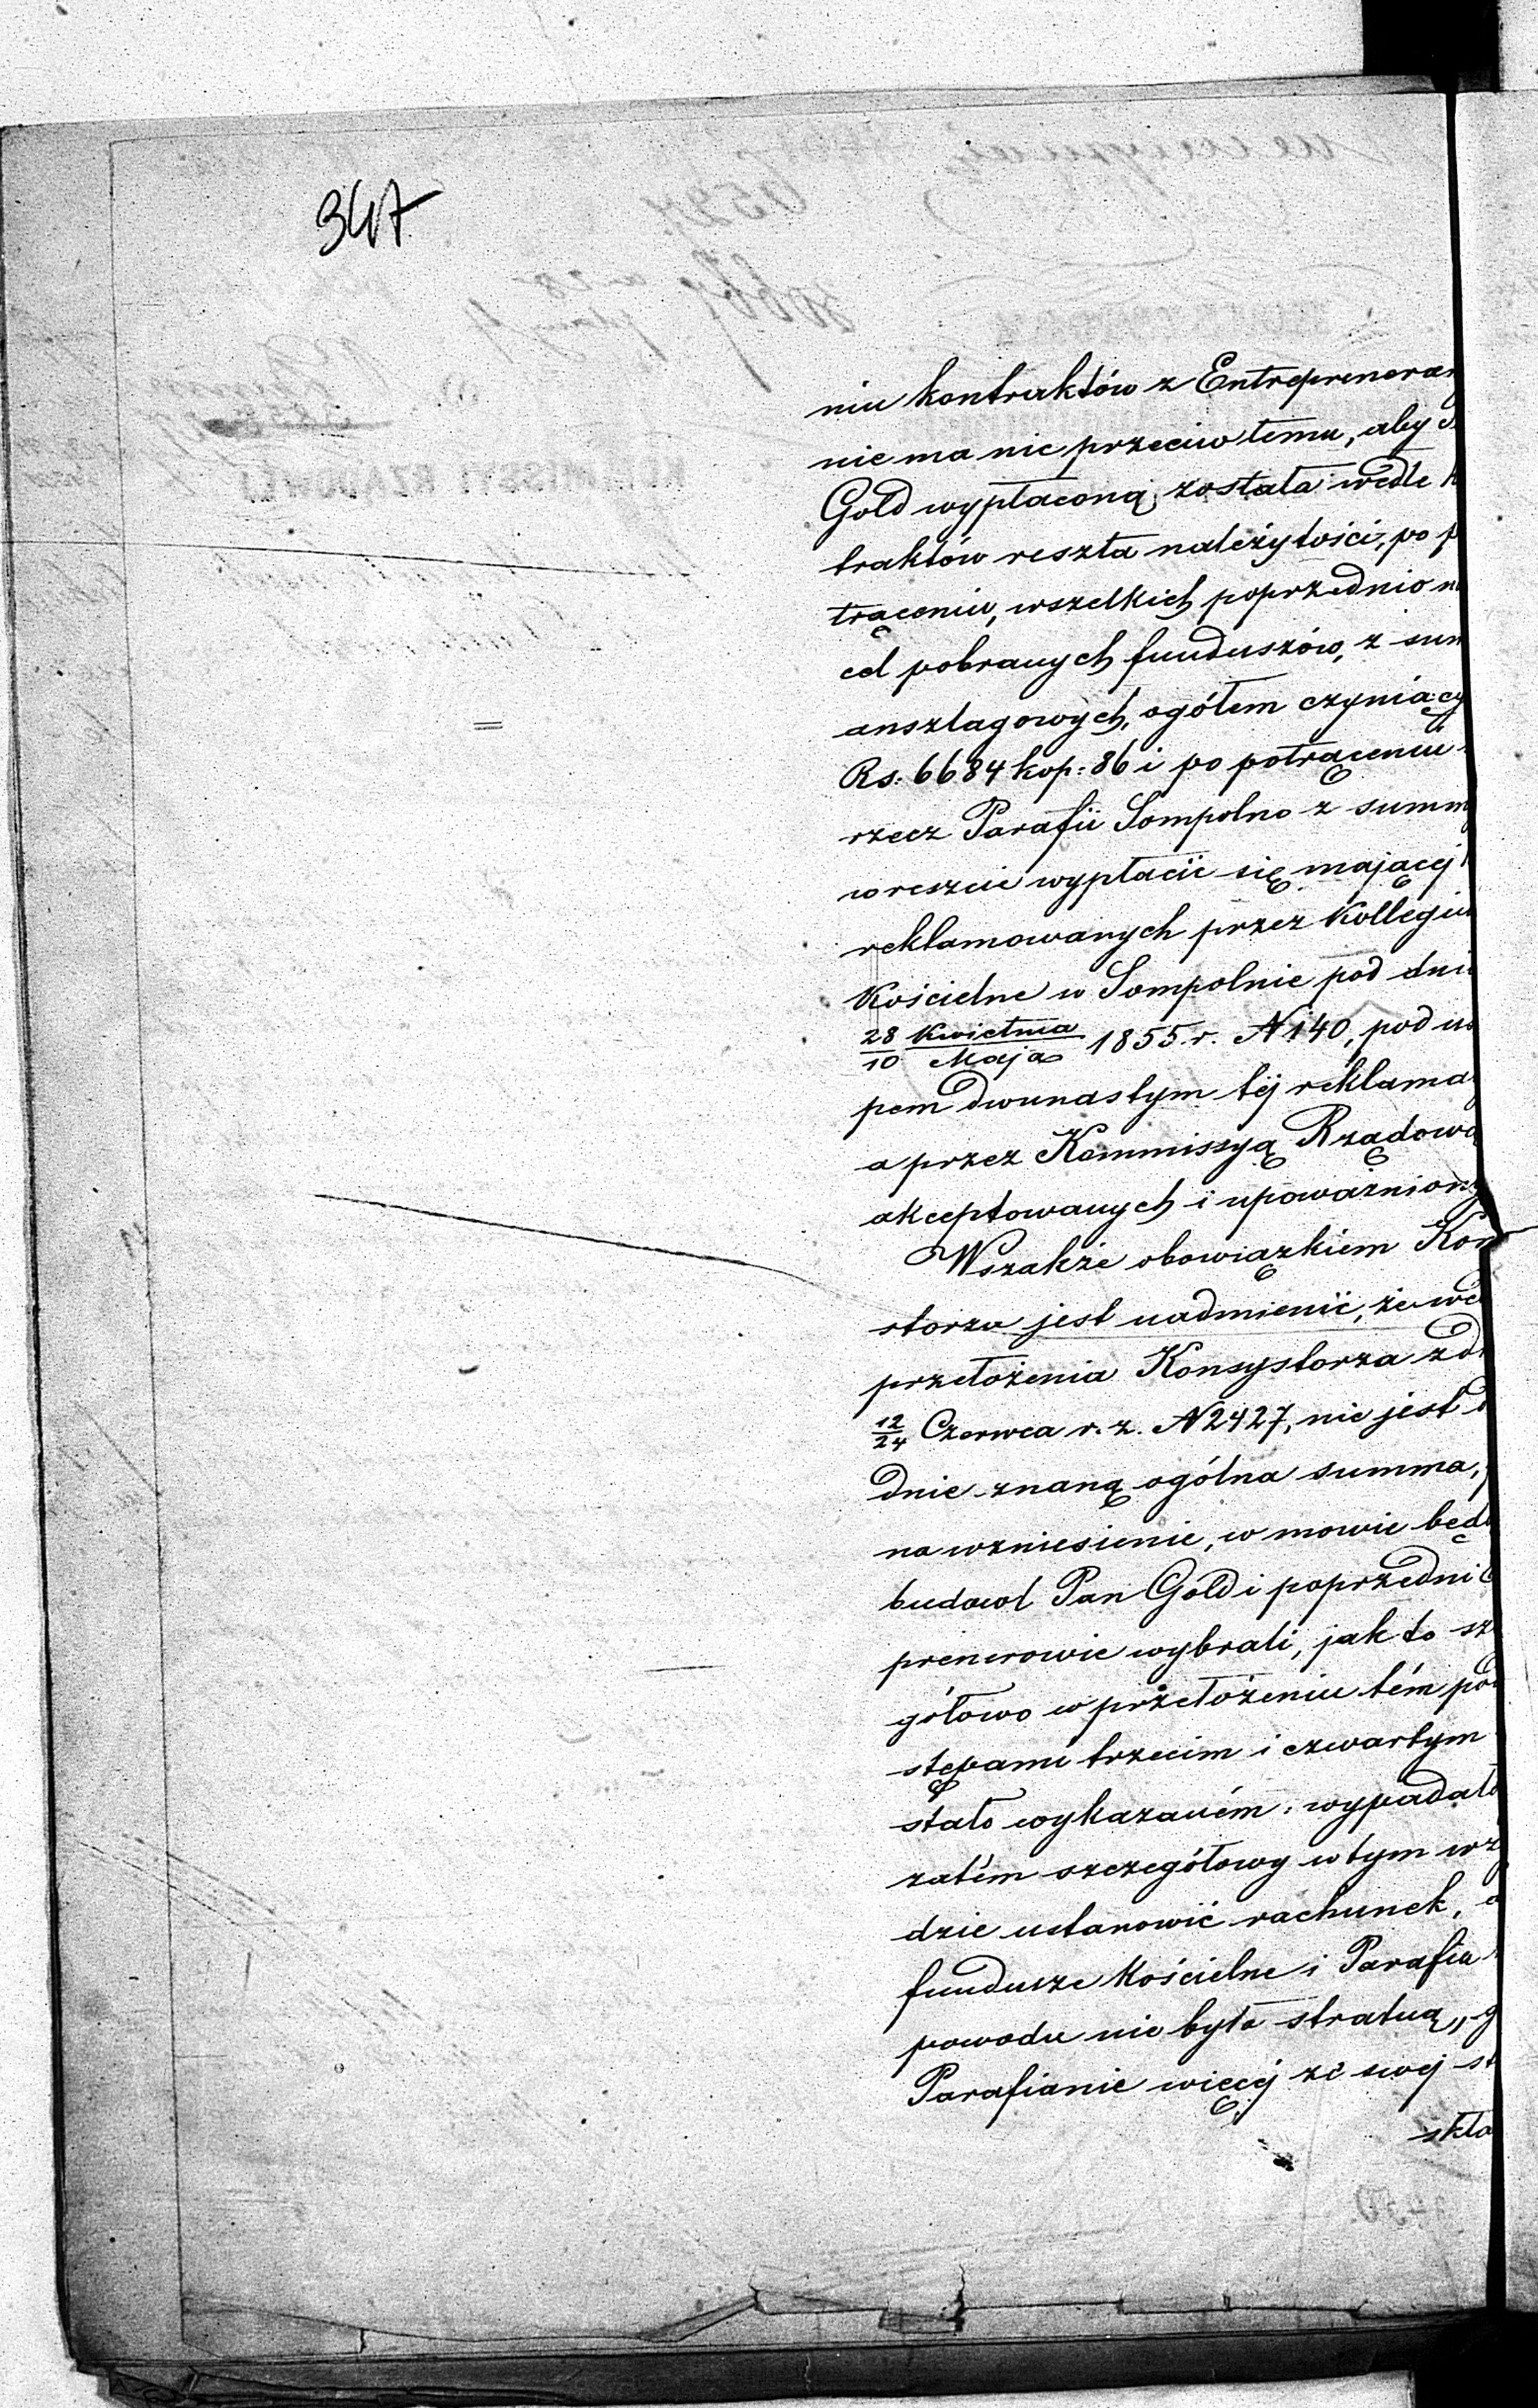 347
niu kontraktów z Entrepreneram
nie ma nic przeciw temu, aby
Gold wypłaconą została wedle
traktów reszta należytości, po
trąceniu, wszelkich poprzednio na
cel pobranych funduszów, z sum
anszlagowych, ogółem czyniący
Rs: 6684 kop: 86 i po potrąceniu
rzecz Parafii Sompolno z summy
w reszcie wypłacić się mającej
reklamowanych przez Kollegiu
Kościelne w Sompolnie pod dni
28/10 Kwietnia/Maja 1855 r. N 140, pod us
pem dwunastym téj reklama
a przez Kommissyą Rządową
akceptowanych i upoważniony
Wszakże obowiązkiem Kon
storza jest nadmienić, że we
przełożenia Konsystorza z d
12/24 Czerwca r. z. N 2427, nie jest
dnie znaną ogólna summa,
na wzniesienie, w mowie będ
budowl Pan Gold i poprzedni
prenerowie wybrali, jak to sz
gółowo w przełożeniu tém pod
stępami trzecim i czwartym
stało wykazaném; wypadało
zatém szczegółowy w tym wz
dzie ustanowić rachunek,
fundusze Kościelne i Parafia
powodu nie była stratną, g
Parafianie więcéj ze swej st
skła